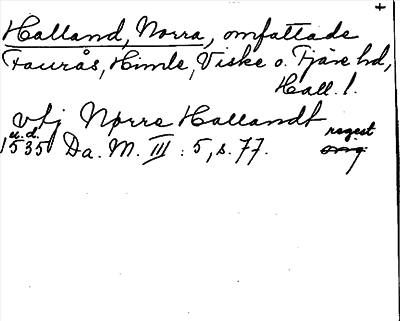 +
Halland, Norra, omfattade
Faurås, Himle, Viske o. Fjäre hd,
Hall. l.
vtj Nørre Hallandt
u.d. regist
1535 Da. M. III : 5, s. 77. orig